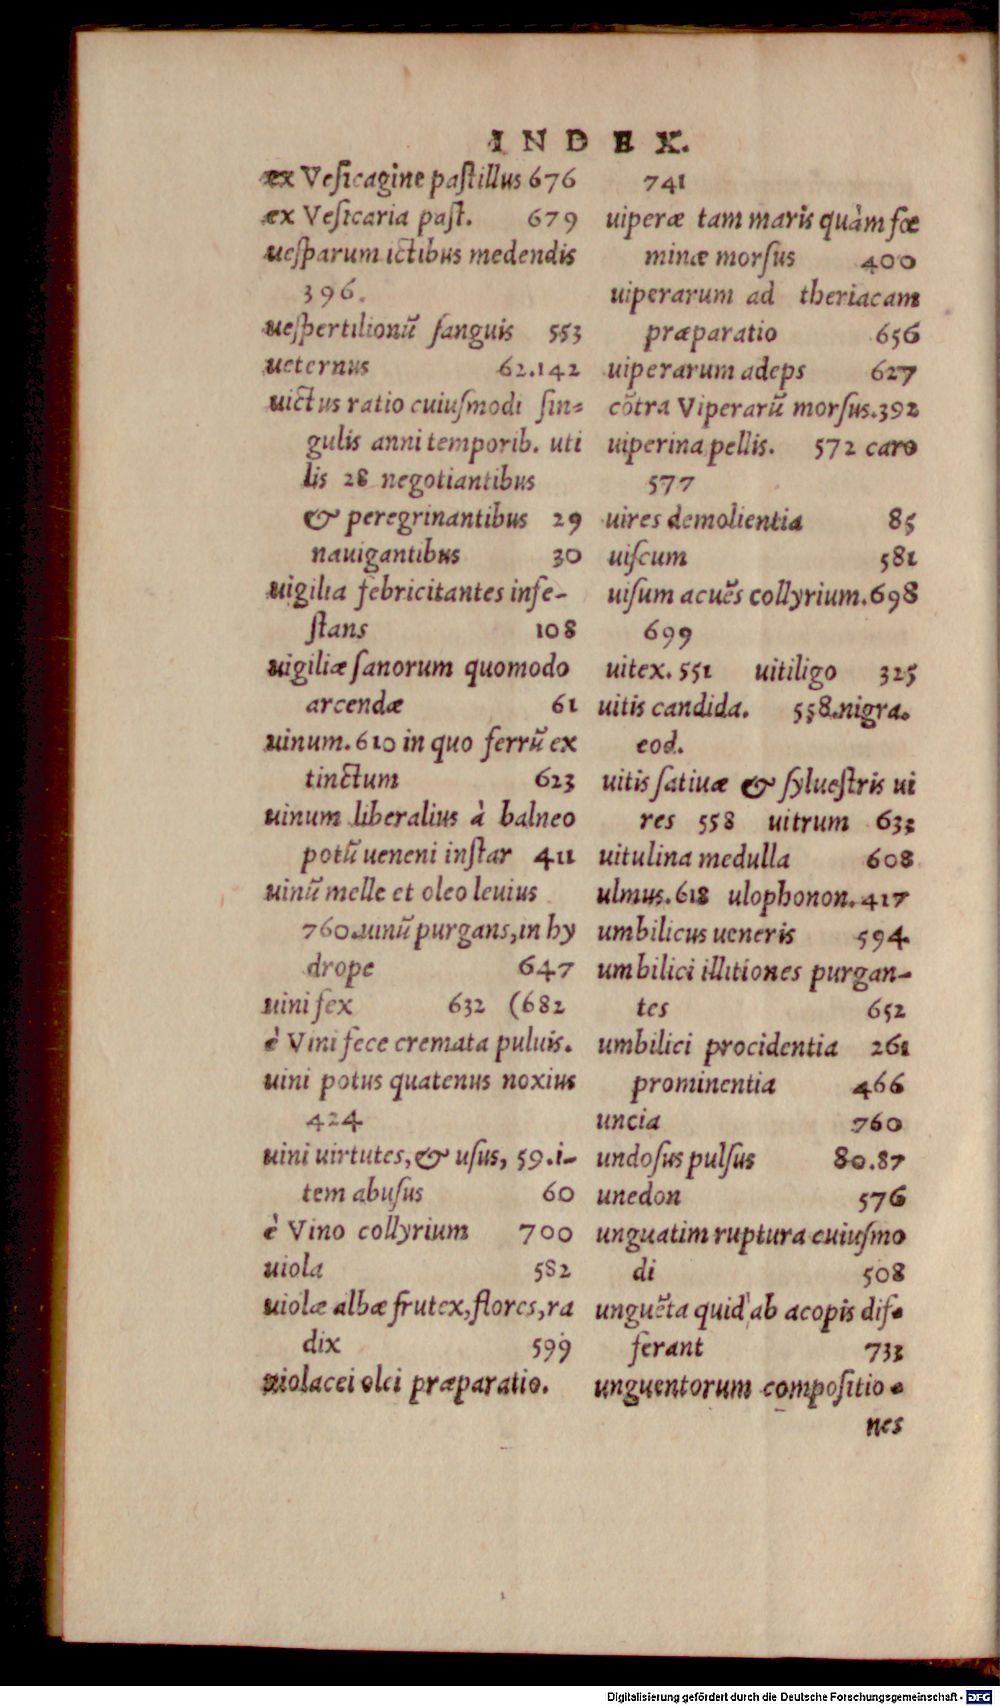 INDEX.
ex Vesicagine pastillus 676
ex Vesicaria past. 679
uesparum ictibus medendis
396.
uespertilionũ sanguis 553
ueternus 62.142
uictus ratio cuiusmodi sin=
gulis anni temporib. uti
lis 28 negotiantibus
& peregrinantibus 29
nauigantibus 30
uigilia febricitantes infe-
stans 108
uigiliæ sanorum quomodo
arcendæ 61
uinum. 610 in quo ferrũ ex
tinctum 623
uinum liberalius à balneo
potũ ueneni instar 411
uinũ melle et oleo leuius
760. uinũ purgans, in hy
drope 647
uini fex 632 (682
è Vini fece cremata puluis.
uini potus quatenus noxius
424
uini uirtutes, & usus, 59. i-
tem abusus 60
è Vino collyrium 700
uiola 582
uiolæ albæ frutex, flores, ra
dix 599
uiolacei olei præparatio.
741
uiperæ tam maris quàm fœ
minæ morsus 400
uiperarum ad theriacam
præparatio 656
uiperarum adeps 627
cõtra Viperarũ morsus. 392
uiperina pellis. 572 caro
577
uires demolientia 85
uiscum 581
uisum acuẽs collyrium. 698
699
uitex. 551 uitiligo 325
uitis candida. 558. nigra.
eod.
uitis satiuæ & syluestris ui
res 558 uitrum 633
uitulina medulla 608
ulmus. 618 ulophonon. 417
umbilicus ueneris 594
umbilici illitiones purgan-
tes 652
umbilici procidentia 261
prominentia 466
uncia 760
undosus pulsus 80.87
unedon 576
unguatim ruptura cuiusmo
di 508
unguẽta quid ab acopis dif-
ferant 733
unguentorum compositio-
nes
Digitalisierung gefördert durch die Deutsche Forschungsgemeinschaft - DFG